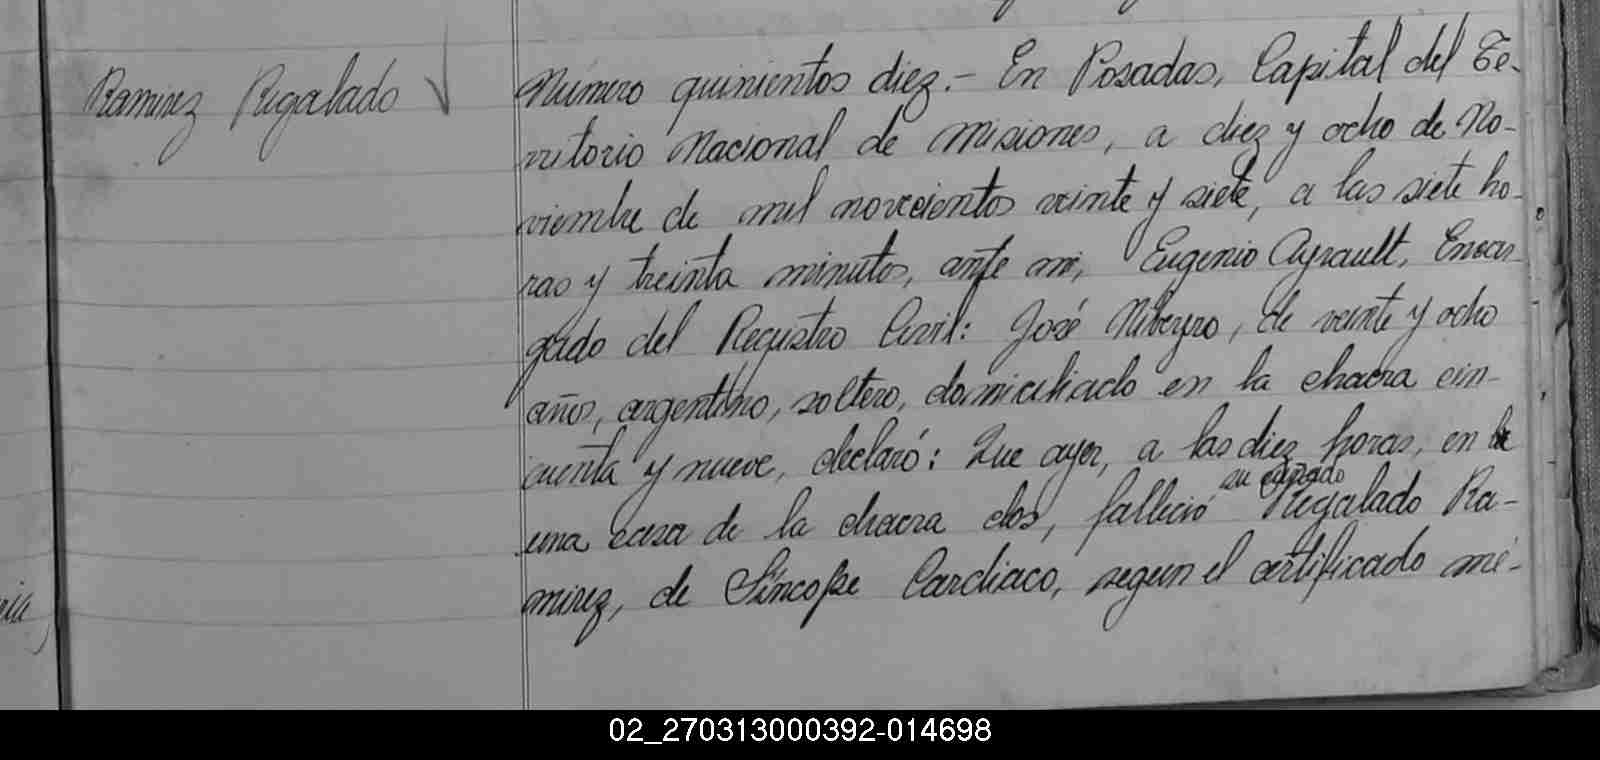 Ramirez Regalado
Número quinientos diez.- En Posadas, Capital del Te-
rritorio Nacional de Misiones, a diez y ocho de No-
viembre de mil novecientos veinte y siete, a las siete ho-
ras y treinta minutos, ante mi, Eugenio Ayrault, Encar-
gado del Registro Civil: José Niveyro, de veinte y ocho
años, argentino, soltero, domiciliado en la chacra cin-
cuenta y nueve, declaró: Que ayer, a las diez horas, en
su cuñado
una casa de la chacra dos, falleció Regalado Ra-
mirez, de Síncope Cardiaco, segun el certificado mé-
02_270313000392-014698